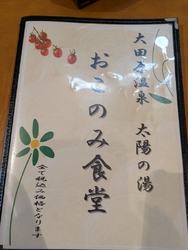 大田尻温泉　太陽の湯
おこのみ食堂
全て税込み価格となります